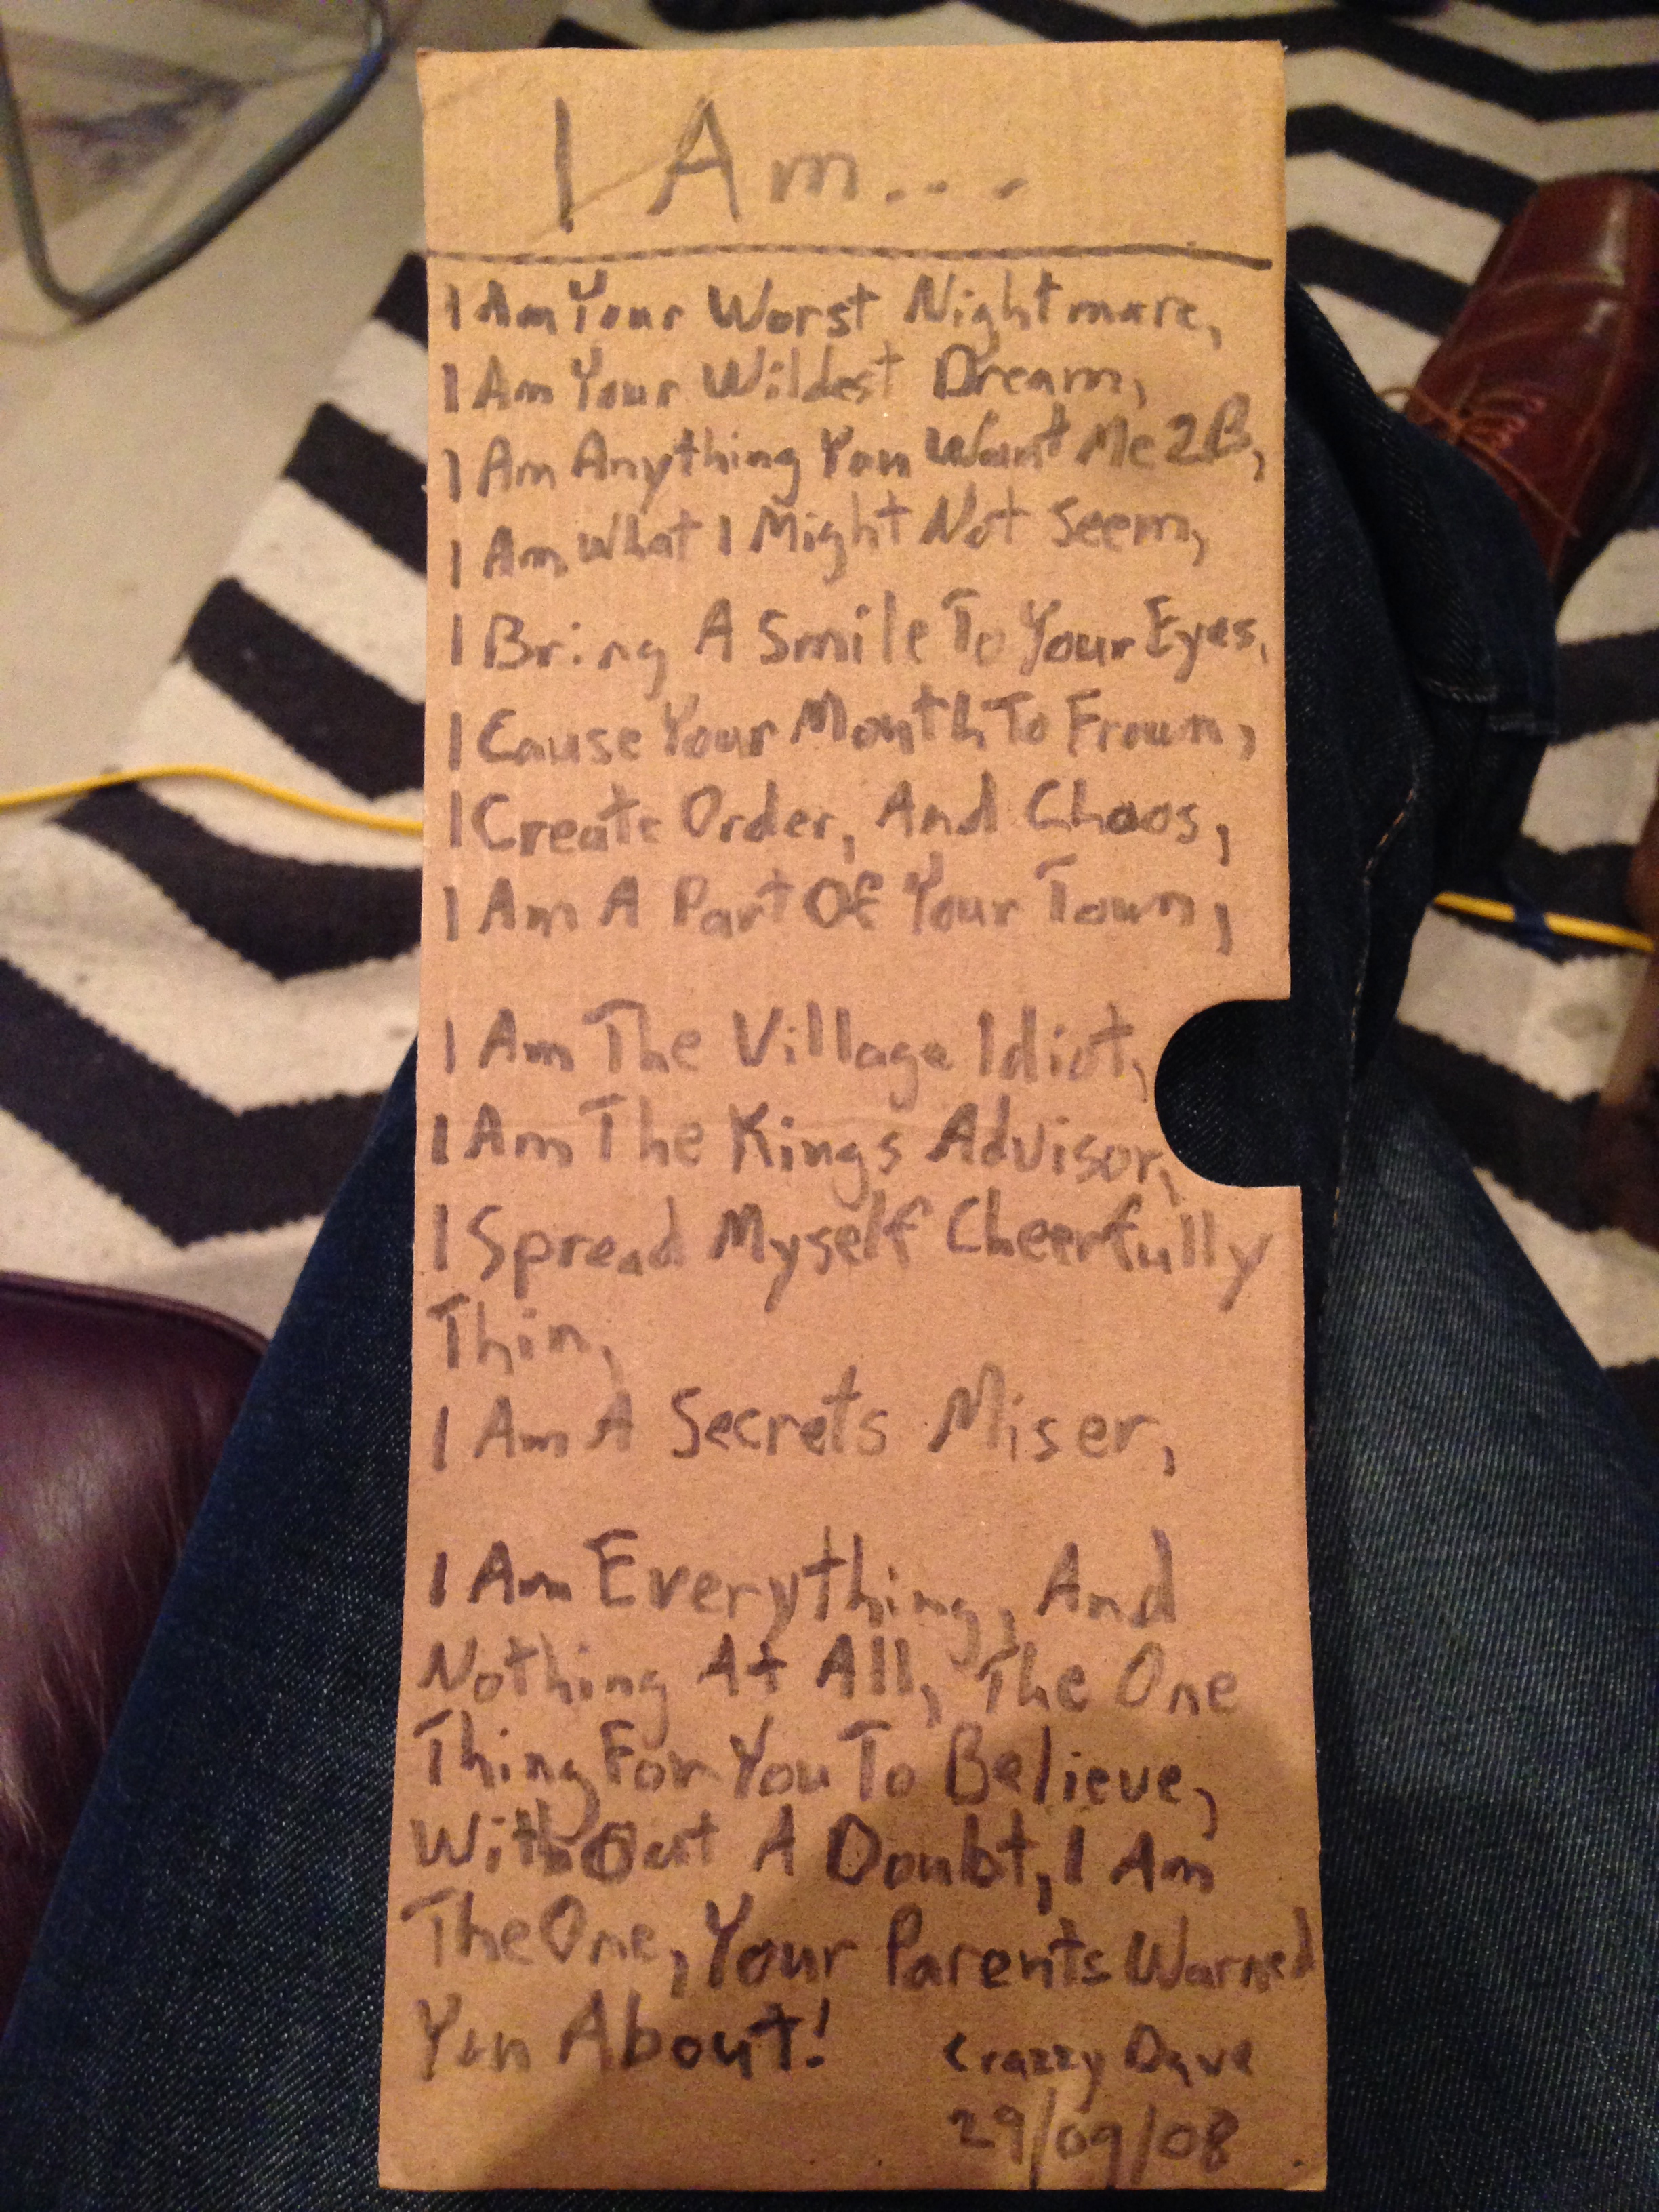 I Am...
I Am Your Worst Nightmare,
I Am Your Wildest Dream,
I Am Anything You Want Me 2B,
I Am What I Might Not Seem,
I Bring A Smile To Your Eyes,
I Cause Your Mouth To Frown,
I Create Order, And Chaos,
I Am A Part Of Your Town,
I Am The Village Idiot,
I Am The Kings Advisor,
I Spread Myself Cheerfully
Thin,
I Am A Secrets Miser,
I Am Everything, And
Nothing At All, The One
Thing For You To Believe,
Without A Doubt, I Am
The One, Your Parents Warned
You About!
Crazzy Dave
29/09/08